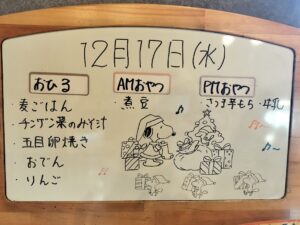 12月17日(水)
おひる
・麦ごはん
・チンゲン菜のみそ汁
・五目卵焼き
・おでん
・りんご
AMおやつ
・煮豆
PMおやつ
・さつま芋もち・牛乳